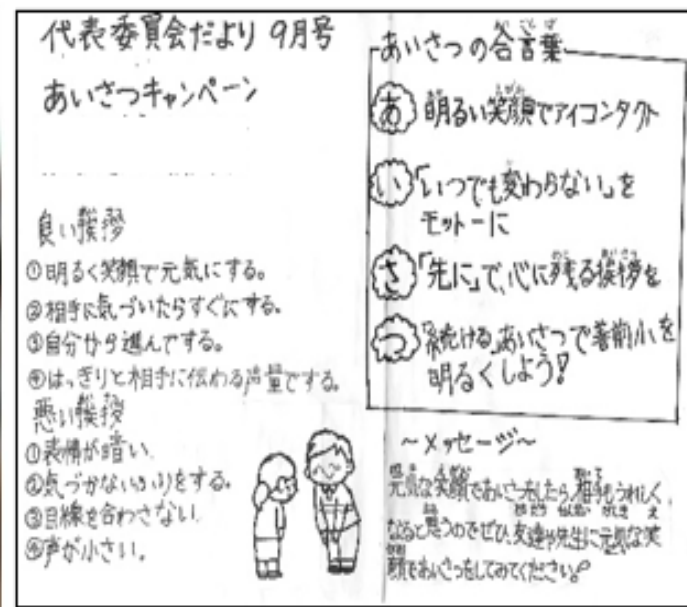 代表委員会だより 9月号
あいさつキャンペーン
良い挨拶
①明るく笑顔で元気にする。
②相手に気づいたらすぐにする。
③自分から進んでする。
④はっきりと相手に伝わる声量でする。
悪い挨拶
①表情が暗い。
②気づかないふりをする。
③目線を合わさない。
④声が小さい。
あいさつの合言葉
あ 明るい笑顔でアイコンタクト
い 「いつでも変わらない」を
モットーに
さ 「先に」で、心に残る挨拶を
つ 「続ける」あいさつで着削小を
明るくしよう!
~メッセージ~
元気な笑顔であいさつをしたら、相手もうれしく
なると思うのでぜひ、友達や先生に元気な笑
顔であいさつをしてみてください。